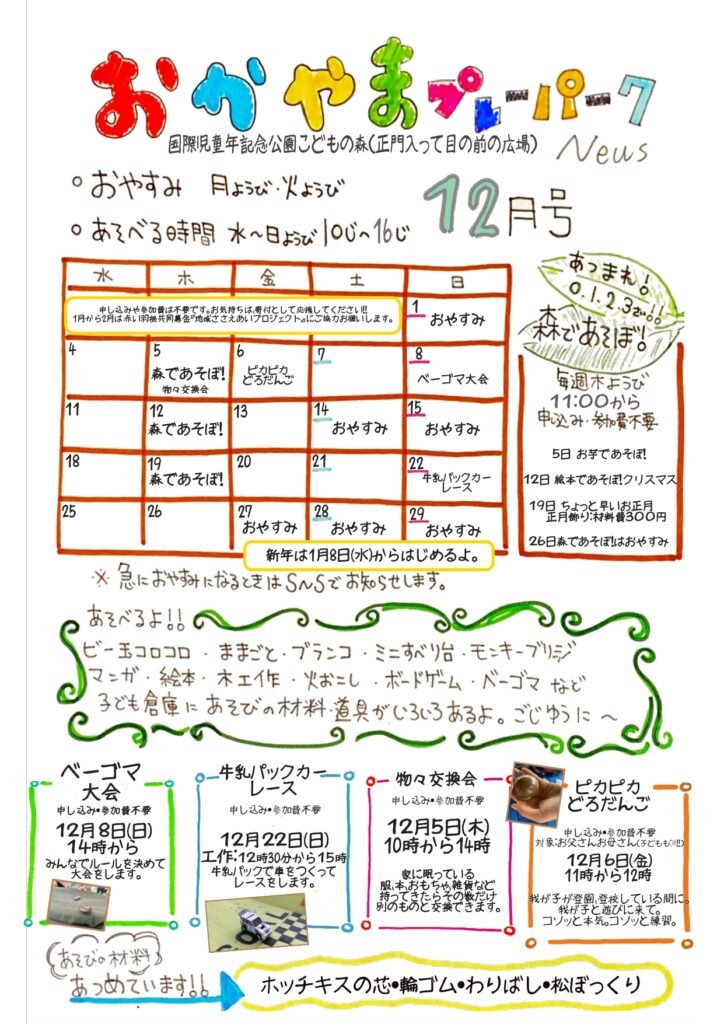 おかやまプレーパーク
国際児童年記念公園こどもの森(正門入って目の前の広場)
News
○おやすみ 月ようび・火ようび
○あそべる時間 水〜日ようび 10じ〜16じ
12月号
水 木 金 土 日
申し込みや参加費は不要です。お気持ちは、寄付として応援してください!!
1月から2月は赤い羽根共同募金『地域ささえあいプロジェクト』にご協力お願いします。
1 おやすみ
4 5 6 7 8
森であそぼ!
物々交換会
ピカピカ
どろだんご
ベーゴマ大会
11 12 13 14 15
森であそぼ! おやすみ おやすみ
18 19 20 21 22
森であそぼ!
牛乳パックカー
レース
25 26 27 28 29
おやすみ おやすみ おやすみ
新年は1月8日(水)からはじめるよ。
※ 急におやすみになるときはSNSでお知らせします。
あつまれ!
0.1.2.3才!!
森であそぼ!
毎週木ようび
11:00から
申込み・参加費不要
5日 お芋であそぼ!
12日 絵本であそぼ!クリスマス
19日 ちょっと早いお正月
正月飾り:材料費300円
26日森であそぼ!はおやすみ
あそべるよ!!
ビー玉コロコロ・ままごと・ブランコ・ミニすべり台・モンキーブリッジ
マンガ・絵本・木工作・火おこし・ボードゲーム・ベーゴマ など
子ども倉庫にあそびの材料・道具がいろいろあるよ。ごじゆうに〜
ベーゴマ
大会
申し込み•参加費不要
12月8日(日)
14時から
みんなでルールを決めて
大会をします。
牛乳パックカー
レース
申し込み•参加費不要
12月22日(日)
工作:12時30分から15時
牛乳パックで車をつくって
レースをします。
物々交換会
申し込み•参加費不要
12月5日(木)
10時から14時
家に眠っている
服、本、おもちゃ、雑貨など
持ってきたらその数だけ
別のものと交換できます。
ピカピカ
どろだんご
申し込み•参加費不要
対象:お父さんお母さん(子どももOK!!)
12月6日(金)
11時から12時
我が子が登園、登校している間に。
我が子と遊びに来て。
コソッと本気。コソッと練習。
あそびの材料
あつめています!!
ホッチキスの芯•輪ゴム•わりばし•松ぼっくり